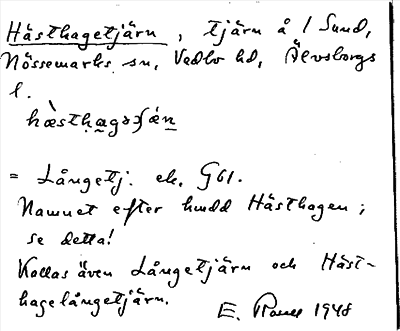 Hästhagetjärn, tjärn å / Sund,
Nössemarks sn, Vedbo hd, Älvsborgs
l.
hæsthagə
= Långetj. ek. G61.
Namnet efter hmdd Hästhagen;
se detta!
Kallas även Långetjärn och Häst-
hagelångetjärn.
E. 1948